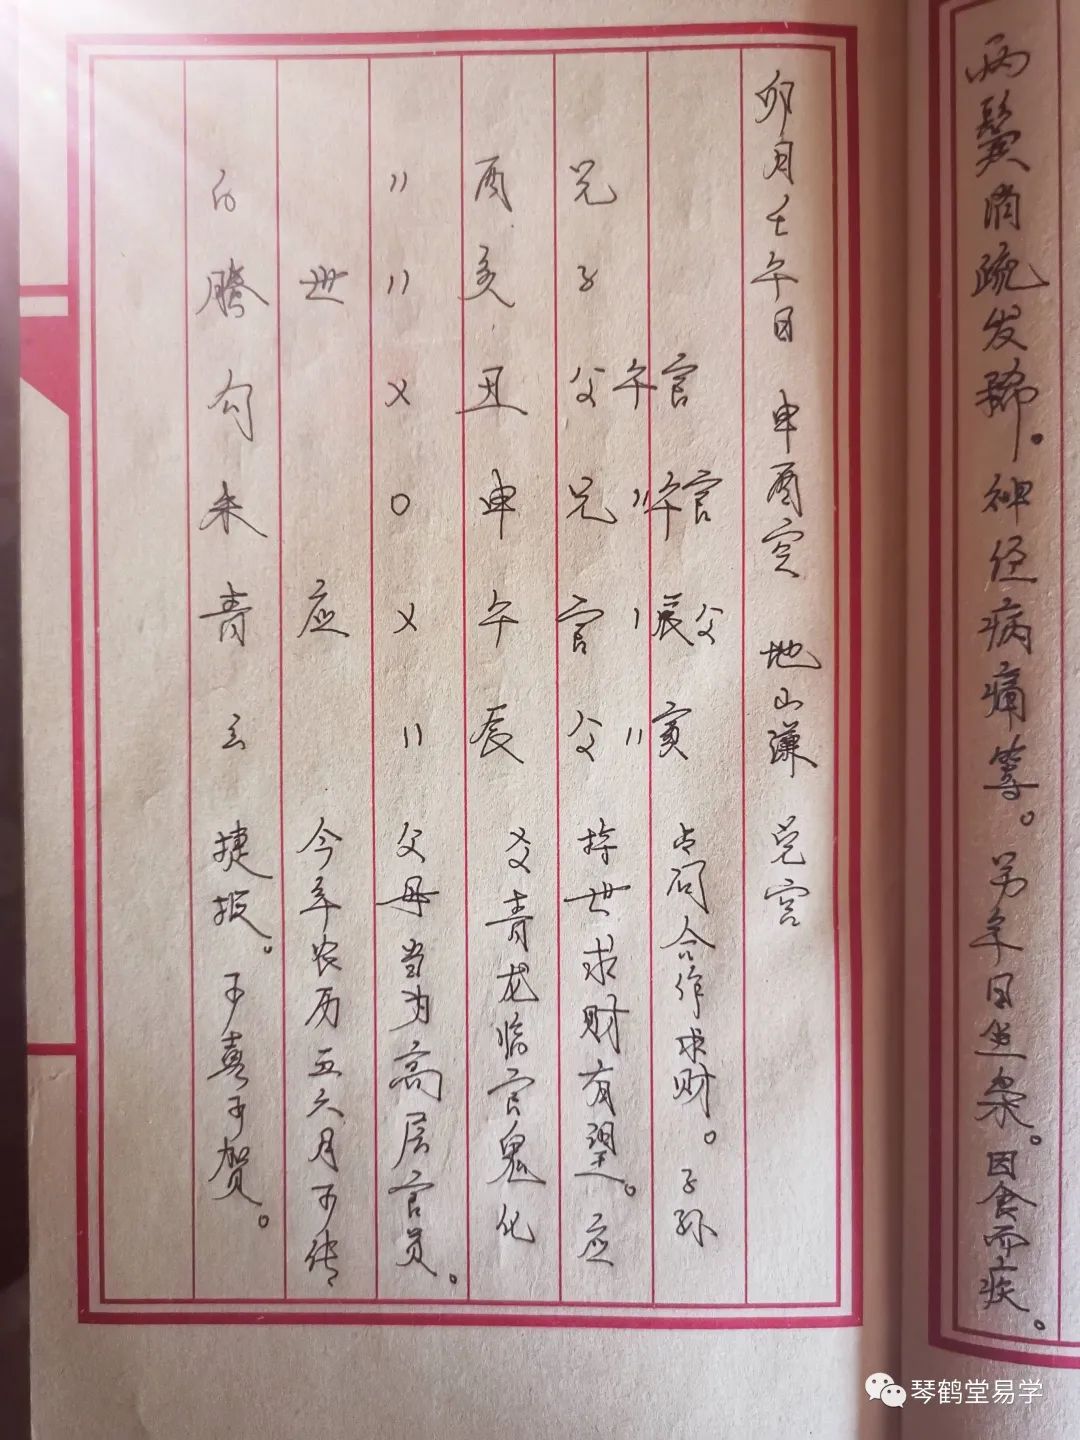 两鬓消疏发稀。神经病痛等。另午日坐柒。因食而疾。
卯月壬午日 申酉空 地山谦 兑宫
午官 午官 辰父 寅 占问合作求财。子孙
兄 子 父 兄 官 父 持世求财有望。应
酉 亥 丑 申 午 辰 爻青龙临官鬼化
〃 〃 乂 〇 乂 〃 父母当为高层官员。
世 应 今年农历五六月可传
白 腾 勾 朱 青 玄 捷报。可喜可贺。
琴鹤堂易学